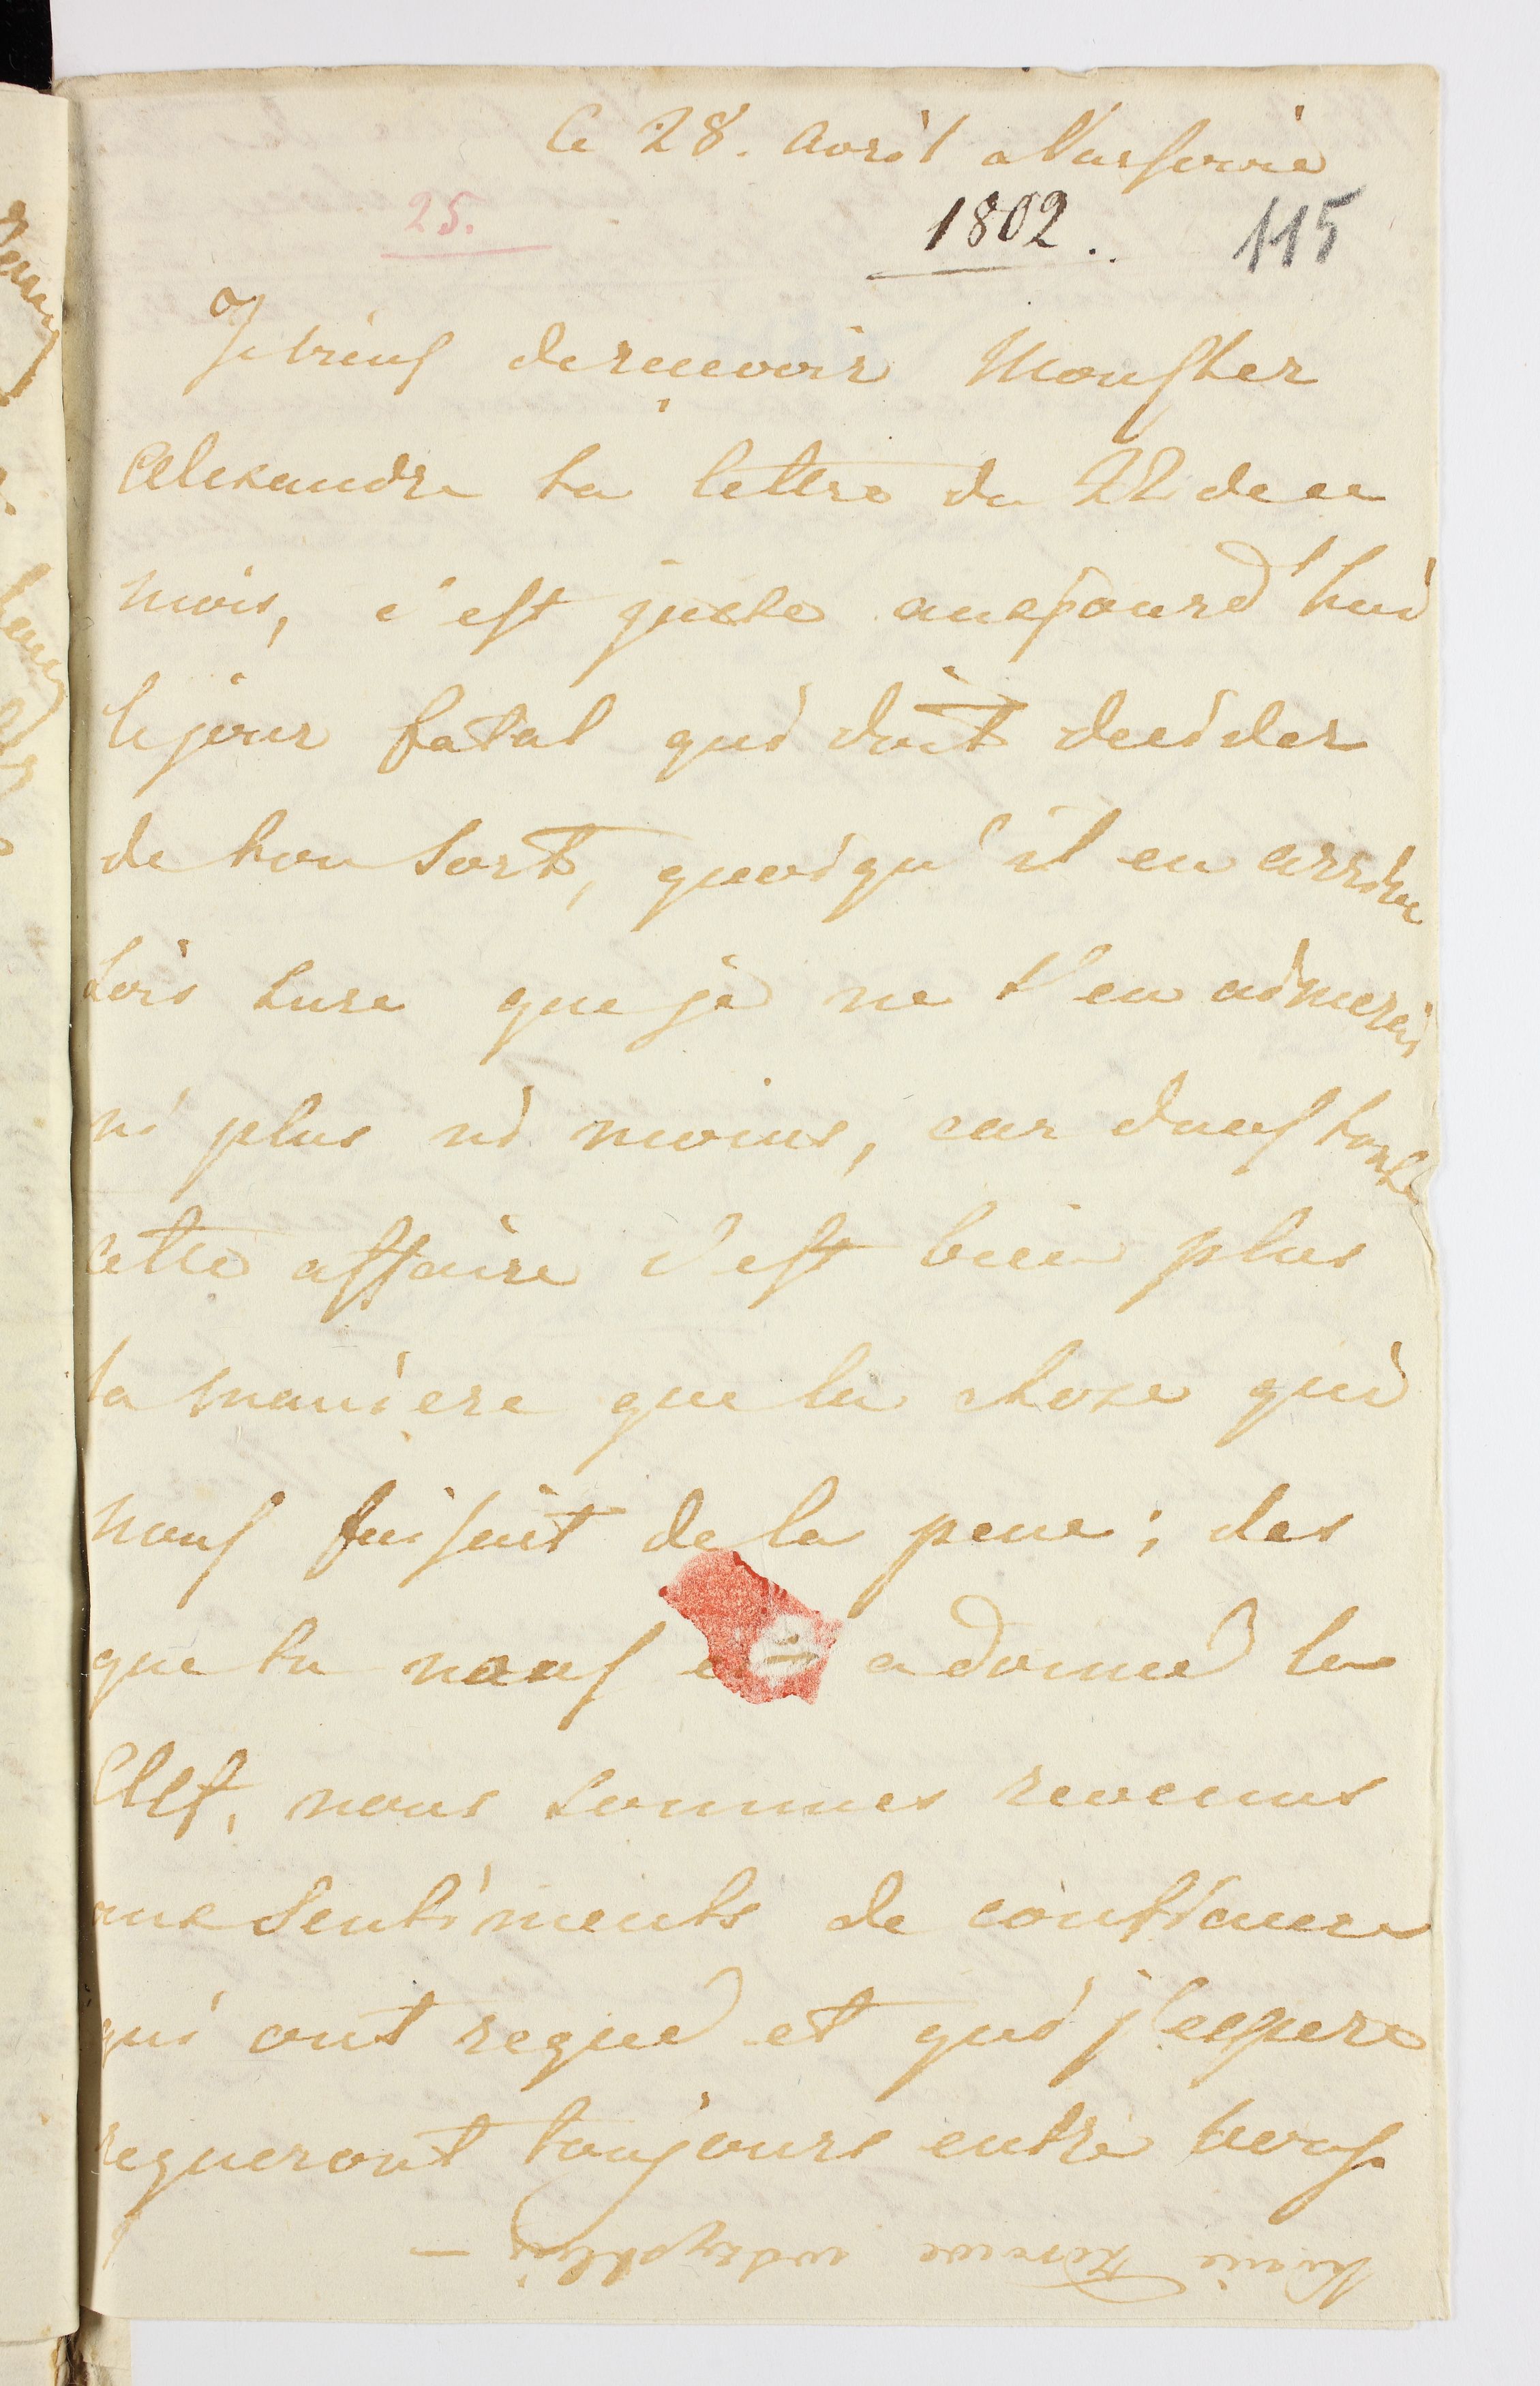 Ce 28. Avril a Varsovie
25.
1802.
115
Je viens de recevoir Mon cher
Alexandre ta lettre du 22 de ce
mois, c'est juste aujourd'hui
le jour fatal qui doit decider
de ton sort, quoiqu'il en arrive
sois sure que je ne t'en aimerais
ni plus ni moins, car dans toute
cette affaire c'est bien plus
la maniere que la chose qui
nous faisait de la peine; des
que tu nous a donné la
Clef, nous sommes revenus
aux sentiments de confiance
qui ont regné et qui j'espere
regneront toujours entre nous